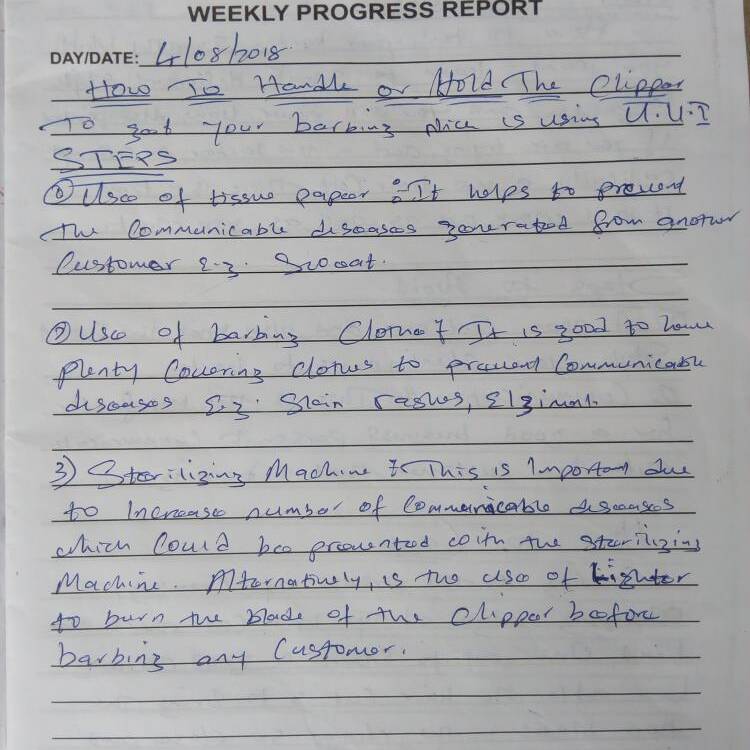 WEEKLY PROGRESS REPORT
DAY/DATE: 4/08/2018
How To Handle or Hold The Clipper
To get your barbing nice is using U.U.I
STEPS
① Use of tissue paper :- It helps to prevent
the Communicable diseases generated from another
Customer E.g. Sweat.
② Use of barbing Clothe :- It is good to have
plenty Covering Clothes to prevent Communicable
diseases E.g. Skin rashes,
3) Sterilizing Machine :- This is Important due
to Increase number of Communicable diseases
which Could be prevented with the sterilizing
Machine. Alternatively, is the use of Lighter
to burn the blade of the Clipper before
barbing any Customer.